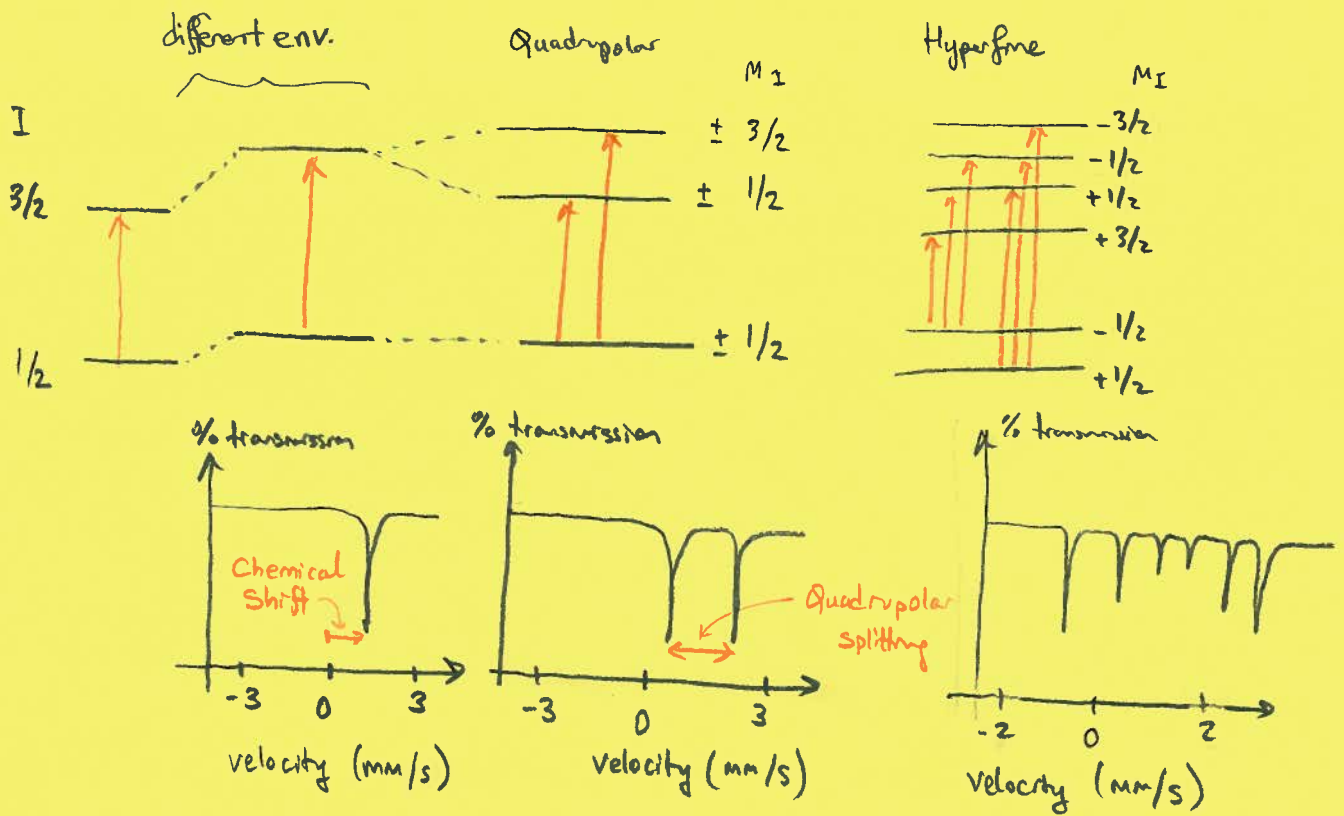 different env.
Quadrupolar
Hyperfine
MI
MI
I
± 3/2
± 1/2
± 1/2
3/2
1/2
- 3/2
- 1/2
+ 1/2
+ 3/2
- 1/2
+ 1/2
% transmission
Chemical
Shift
-3 0 3
velocity (mm/s)
% transmission
Quadrupolar
splitting
-3 0 3
velocity (mm/s)
% transmission
-2 0 2
velocity (mm/s)